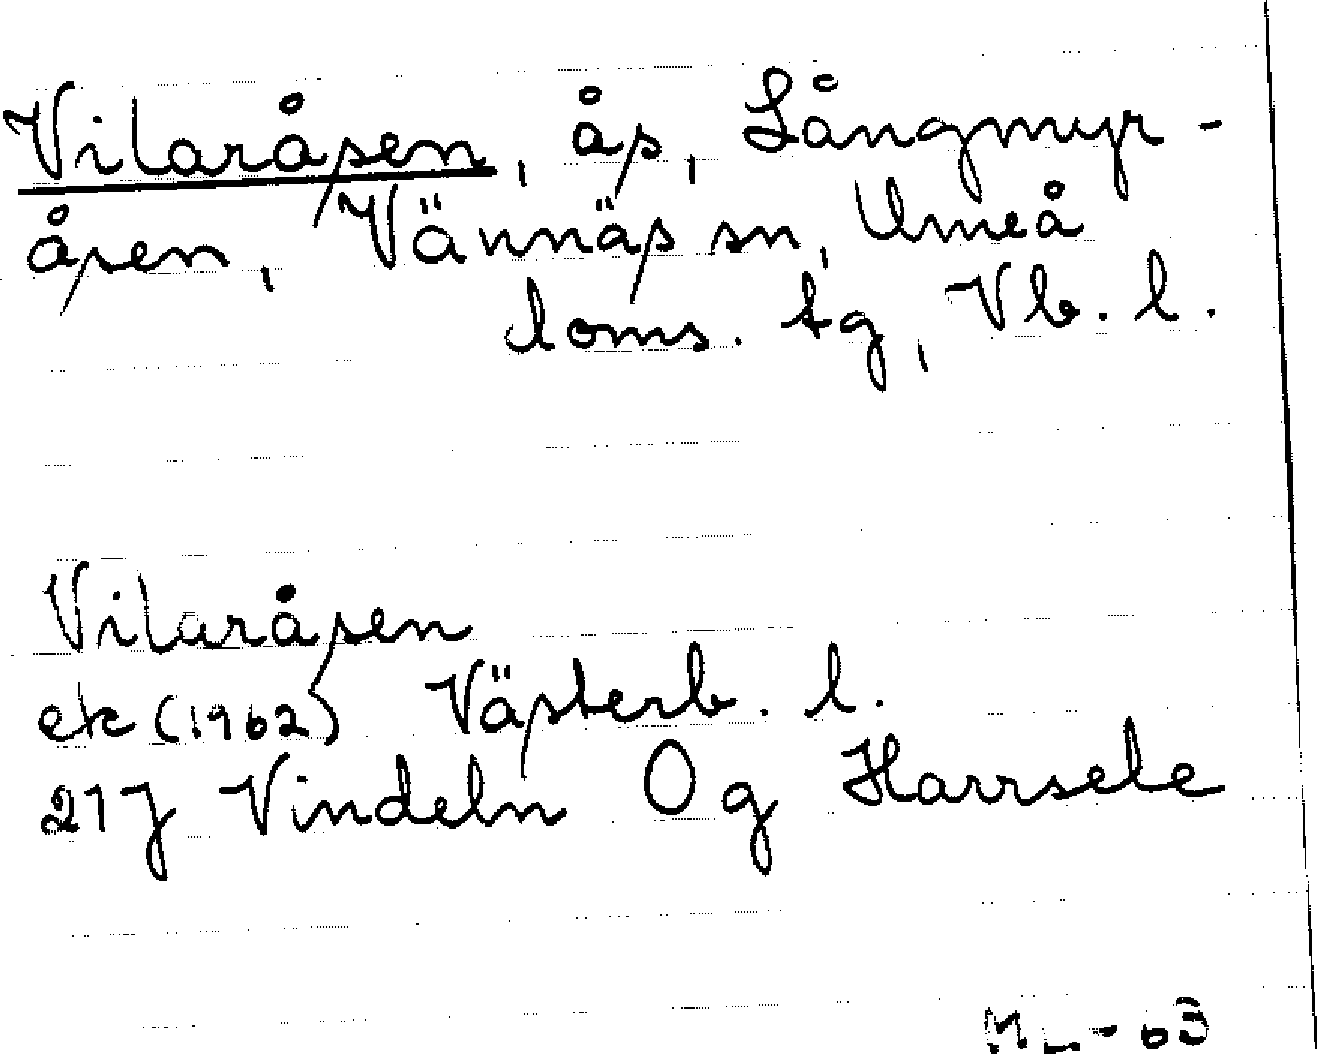 Vilaråsen, ås, Långmyr-
åsen, Vännäs sn, Umeå
doms. tg, Vb. l.
Vilaråsen
ek (1962) Västerb. l.
21J Vindeln Og Harrsele
ML-63